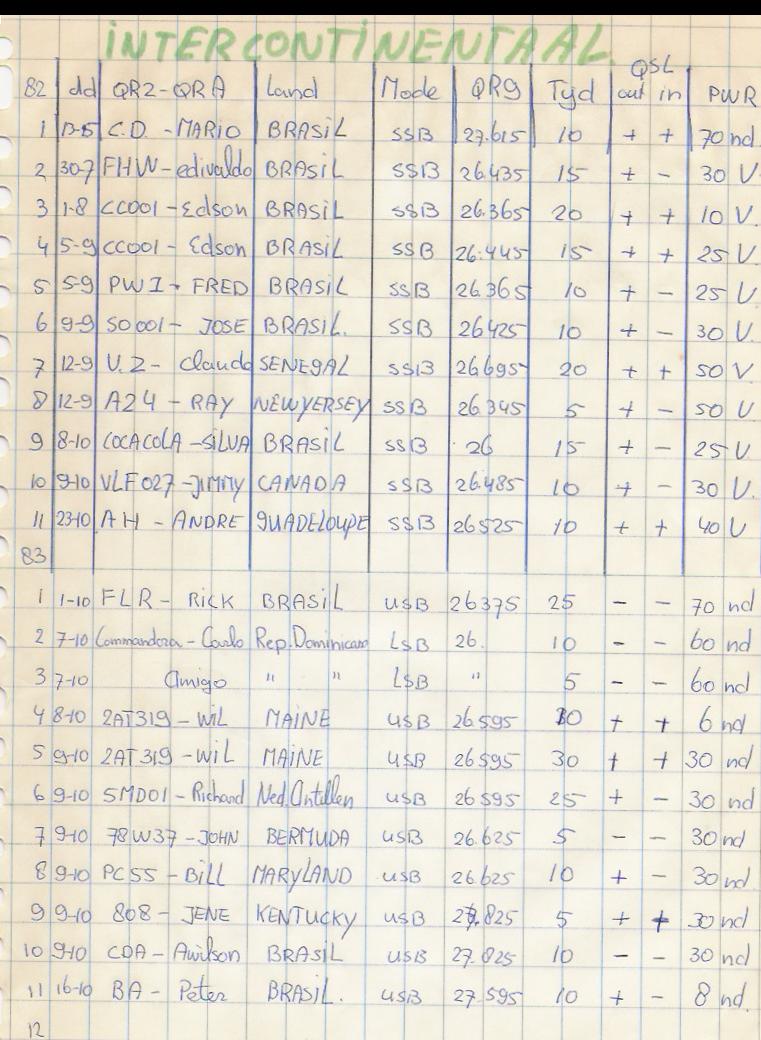 INTERCONTINENTAAL
QSL
82 dd QRZ-QRA Land Mode QRG Tyd out in PWR
1 13-5 C.D. - MARIO BRASIL SSB 27.615 10 + + 70 nd
2 30-7 FHW - edivaldo BRASIL SSB 26.435 15 + - 30 V.
3 1-8 CC001 - Edson BRASIL SSB 26.365 20 + + 10 V.
4 5-9 CC001 - Edson BRASIL SSB 26.445 15 + + 25 V.
5 5-9 PWI - FRED BRASIL SSB 26.365 10 + - 25 V.
6 9-9 SO001 - JOSE BRASIL. SSB 26425 10 + - 30 V.
7 12-9 V.2 - Claude SENEGAL SSB 26.695 20 + + 50 V
8 12-9 A24 - RAY NEWYERSEY SSB 26.345 5 + - 50 V
9 8-10 COCACOLA - SILVA BRASIL SSB 26 15 + - 25 V
10 9-10 VLF027 - JIMMY CANADA SSB 26.485 10 + - 30 V.
11 23-10 AH - ANDRE GUADELOUPE SSB 26525 10 + + 40 V
83
1 1-10 FLR - RICK BRASIL USB 26375 25 - - 70 nd
2 7-10 Commandora - Carlo Rep. Dominicans LSB 26. 10 - - 60 nd
3 7-10 Amigo " " LSB " 5 - - 60 nd
4 8-10 2AT319 - WIL MAINE USB 26.595 30 + + 6 nd
5 9-10 2AT319 - WIL MAINE USB 26595 30 + + 30 nd
6 9-10 5MD01 - Richard Ned. Antillen USB 26595 25 + - 30 nd
7 9-10 78W37 - JOHN BERMUDA USB 26.625 5 - - 30 nd
8 9-10 PC55 - BILL MARYLAND USB 26.625 10 + - 30 nd.
9 9-10 808 - JENE KENTUCKY USB 27.825 5 + + 30 nd
10 9-10 CDA - Awilson BRASIL USB 27.825 10 - - 30 nd
11 16-10 BA - Peter BRASIL. USB 27.595 10 + - 8 nd.
12